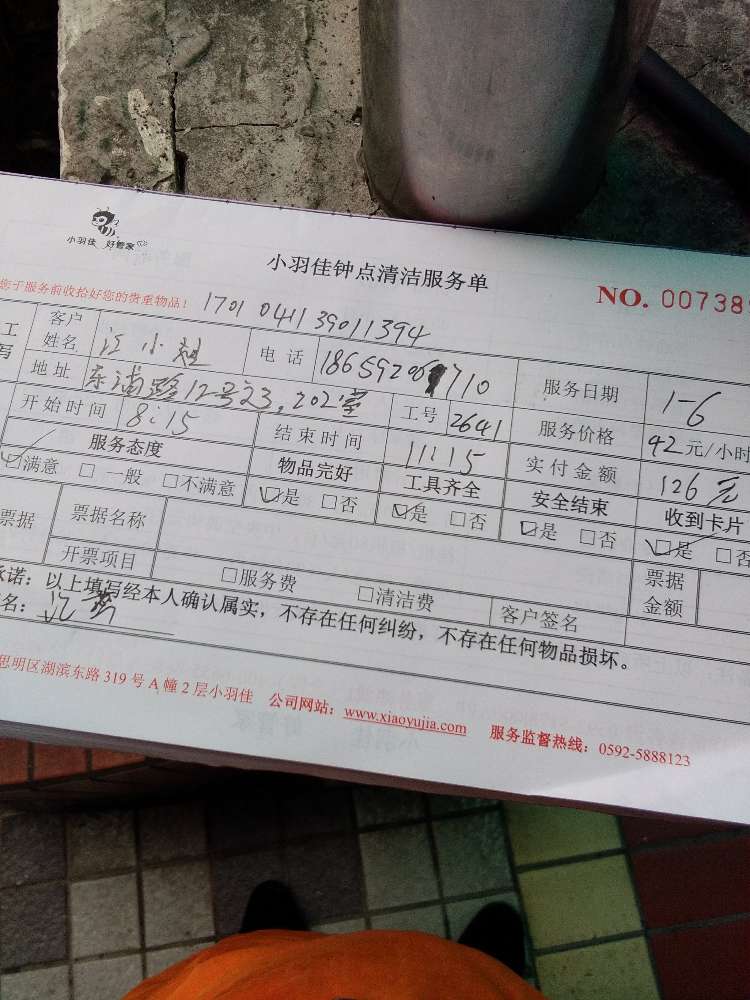 小羽佳 好管家
小羽佳钟点清洁服务单
NO. 00738
您于服务前收拾好您的贵重物品! 1701 041139011394
工 客户姓名 江小 电话 186592 710 服务日期 1-6
写 地址 东浦路12号之3,202室 工号 2641 服务价格 42元/小时
开始时间 8:15 结束时间 11:15 实付金额 126元
服务态度 物品完好 工具齐全 安全结束 收到卡片
☑满意 □一般 □不满意 ☑是 □否 ☑是 □否 ☑是 □否 ☑是 □否
票据 票据名称 票据金额
开票项目 □服务费 □清洁费 客户签名
承诺:以上填写经本人确认属实,不存在任何纠纷,不存在任何物品损坏。
名:
思明区湖滨东路319号A幢2层小羽佳 公司网站:www.xiaoyujia.com 服务监督热线:0592-5888123